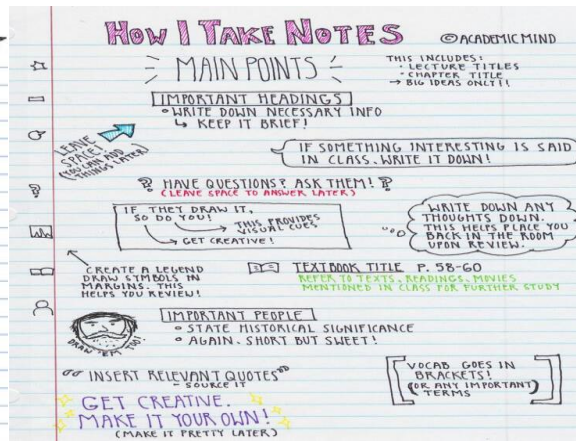 HOW I TAKE NOTES
© ACADEMIC MIND
MAIN POINTS
THIS INCLUDES:
· LECTURE TITLES
· CHAPTER TITLE
→ BIG IDEAS ONLY!!
IMPORTANT HEADINGS
• WRITE DOWN NECESSARY INFO
↳ KEEP IT BRIEF!
LEAVE
SPACE!
(YOU CAN ADD
THINGS LATER)
IF SOMETHING INTERESTING IS SAID
IN CLASS, WRITE IT DOWN!
? HAVE QUESTIONS? ASK THEM! ?
(LEAVE SPACE TO ANSWER LATER)
IF THEY DRAW IT,
SO DO YOU!
THIS PROVIDES
VISUAL CUES
GET CREATIVE!
WRITE DOWN ANY
THOUGHTS DOWN.
THIS HELPS PLACE YOU
BACK IN THE ROOM
UPON REVIEW.
CREATE A LEGEND
DRAW SYMBOLS IN
MARGINS. THIS
HELPS YOU REVIEW!
TEXTBOOK TITLE P. 58-60
REFER TO TEXTS, READINGS, MOVIES
MENTIONED IN CLASS FOR FURTHER STUDY
IMPORTANT PEOPLE
• STATE HISTORICAL SIGNIFICANCE
• AGAIN. SHORT BUT SWEET!
DRAW 'EM TOO!
"INSERT RELEVANT QUOTES"
- SOURCE IT
[VOCAB GOES IN
BRACKETS!
(OR ANY IMPORTANT)
TERMS]
GET CREATIVE.
MAKE IT YOUR OWN!
(MAKE IT PRETTY LATER)